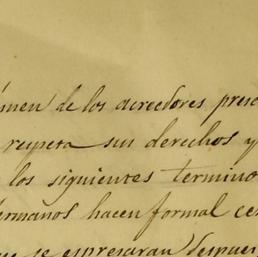 ámen de los acreedores prese
respeta sus derechos y
los siguientes termino
hermanos hacen formal ces
que se espresaran despue